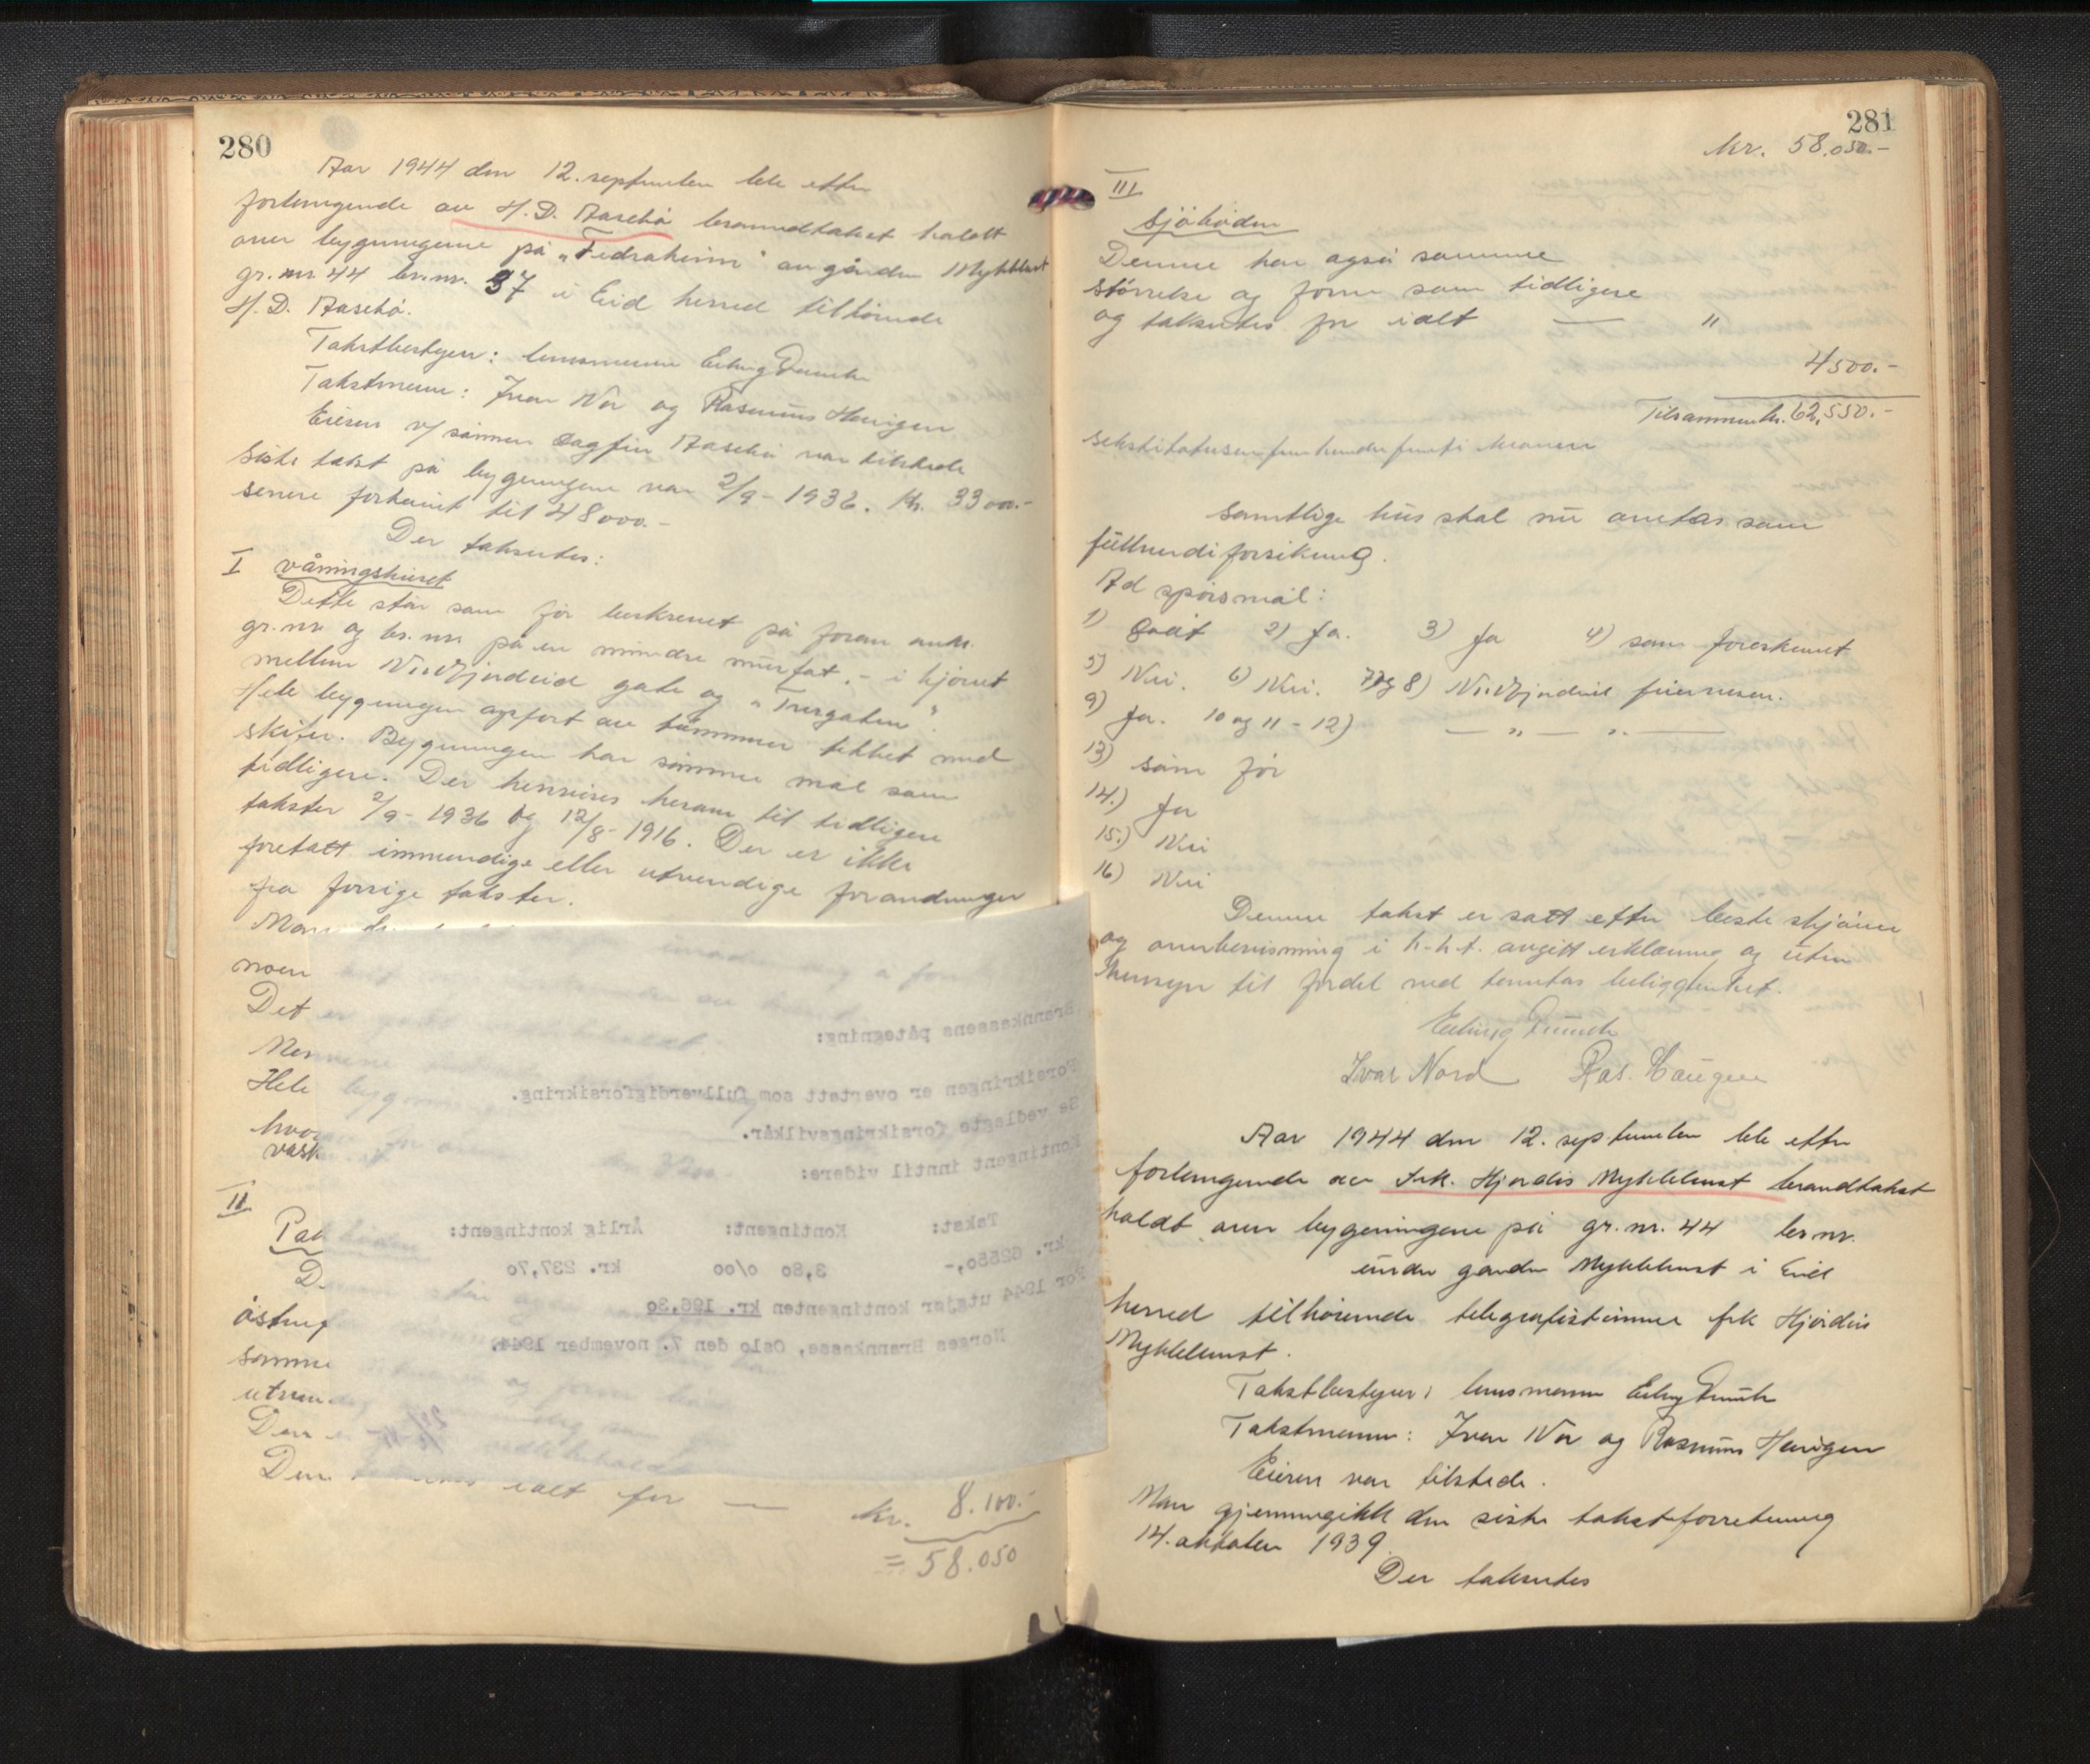 280
Aar 1944 den 12. september ble efter
forlangende av H. D. Aasebø branndtakst holdt
over bygningene på „Fedraheim" av gården Myklebust
gr. nr. 44 br. nr. 37 i Eid herred tilhørende
H. D. Aasebø.
Takstbestyrer: lensmann Erling
Takstmenn: Ivar Nor og Rasmus Haugen
Eieren v/ sønnen Dagfin Aasebø var tilstede
Siste takst på bygningene var 2/9-1936. Kr. 33000.-
senere forhøiet til 48000.-
Der takseres:
I våningshuset
Dette står som før beskrevet på foran anh.
gr. nr. og br. nr. på en mindre murfot, - i hjørnet
mellem Nordfjordeid gate og "Torggaten".
Hele bygningen opført av tømmer tekket med
skifer. Bygningen har samme mål som
tidligere. Der henvises herom til tidligere
takster 2/9-1936 og 12/8-1916. Der er ikke
foretatt innvendige eller utvendige forandringer
fra forrige takster.
noen
Det
Hele
hvo
vask
II
Pak
D
østng
samme
utven
Den
Den ialt for — kr. 8.100.-
= 58.050
Brannkassens påtegning:
Forsikringen er overtatt som fullverdigforsikring.
Se vedlagte forsikringsvilkår.
Kontingent inntil videre:
Takst: Kontingent: Årlig kontingent:
kr. 62550,- 3,80 o/oo kr. 237,70
For 1944 utgjør kontingenten kr. 196,30
Norges Brannkasse, Oslo den 7. november 1944.
281
kr. 58.050.-
III
Sjøboden
Denne har også samme
størrelse og form som tidligere
og takseres for ialt — "
4500.-
Tilsammen kr. 62.550.-
sekstitotusenfemhundrefemti kroner
Samtlige hus skal nu ansetas som
fullverdiforsikring.
Ad spørsmål:
1) Godt 2) Ja. 3) Ja 4) som foreskrevet
5) Nei. 6) Nei. 7 og 8) Nordfjordeid feiervesen.
9) Ja. 10 og 11 - 12) — " — " —
13) som før
14.) Ja
15.) Nei
16) Nei
Denne takst er satt efter beste skjønn
og overbevisning i h.h.t. avgitt erklæring og uten
hensyn til fordel ved tomtas beliggenhet.
Erling
Ivar Nord Ras. Haugen
Aar 1944 den 12. september ble efter
forlangende av Frk. Hjørdis Myklebust brandtakst
holdt over bygningene på gr. nr. 44 br. nr.
under garden Myklebust i Eid
herred tilhørende telegrafistinne frk Hjørdis
Myklebust.
Takstbestyrer: lensmann Erling
Takstmenn: Ivar Nor og Rasmus Haugen
Eieren var tilstede.
Man gjennemgikk den siste takstforretning
14. oktober 1939.
Der takseres